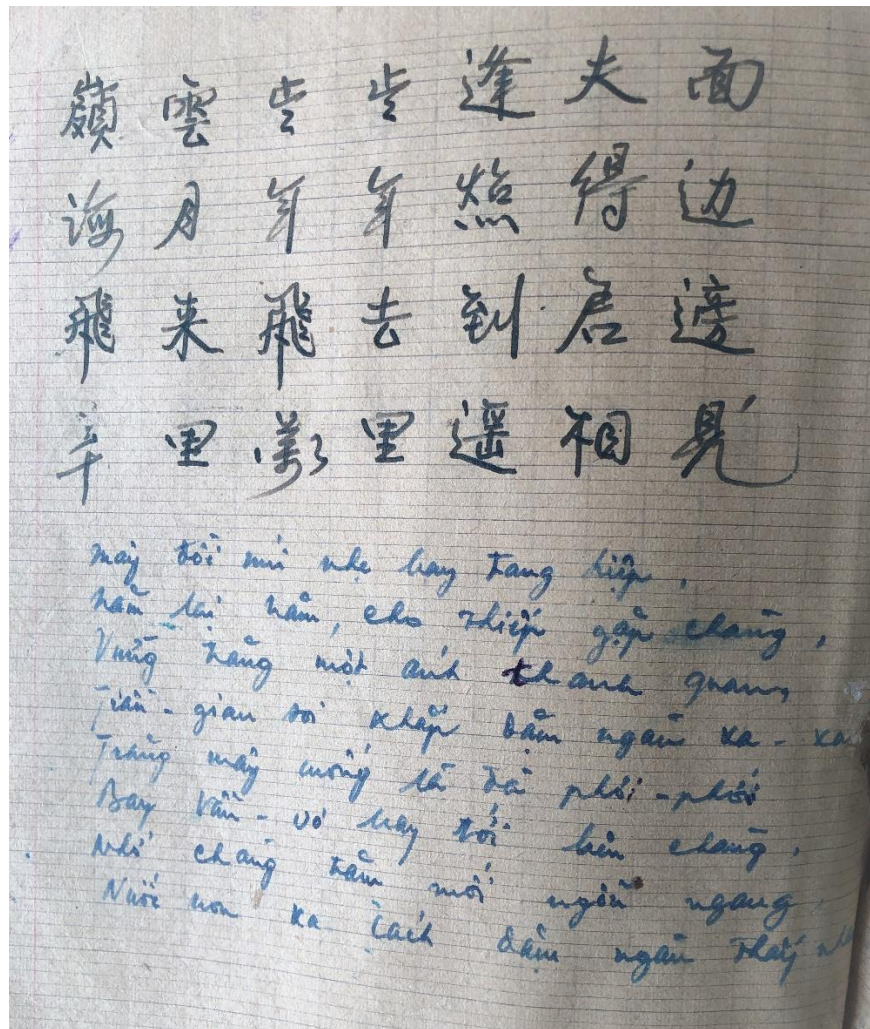 嶺雲歲歲逢夫面
海月年年照得边
飛来飛去到君邊
千里萬里遥相見
mây đồi núi nhẹ bay tang hiệp,
năm lại năm, cho thiếp gặp chàng,
Vừng trăng một ánh thanh quang,
gian soi khắp dặm ngàn xa-xa
Trăng mây cũng là đà phới-phới
Bay vẩn-vơ bay tới bên chàng,
Nhớ chàng trăm mối ngổn ngang,
Nước non xa cách dặm ngàn thấy